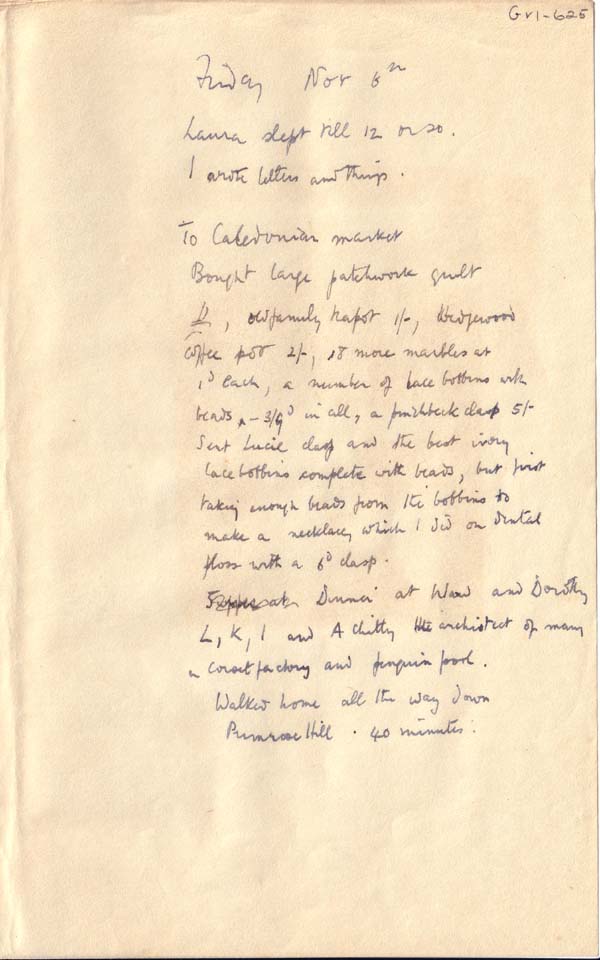 GV1-625
Friday Nov 6th
Laura slept till 12 or so.
I wrote letters and things.
To Caledonian market
Bought large patchwork quilt
, old family teapot 1/-, Wedgewood
coffee pot 2/-, 18 more marbles at
1d each, a number of lace bobbins with
beads, – 3/9d in all, a pinchbeck clasp 5/-
Sent Lucie clasp and the best ivory
lace bobbins complete with beads, but first
taking enough beads from the bobbins to
make a necklace, which I did on dental
floss with a 6d clasp.
Dinner at and Dorothy
L, K, I and A Chitty the architect of many
a corset factory and penguin pool.
Walked home all the way down
Primrose Hill . 40 minutes.